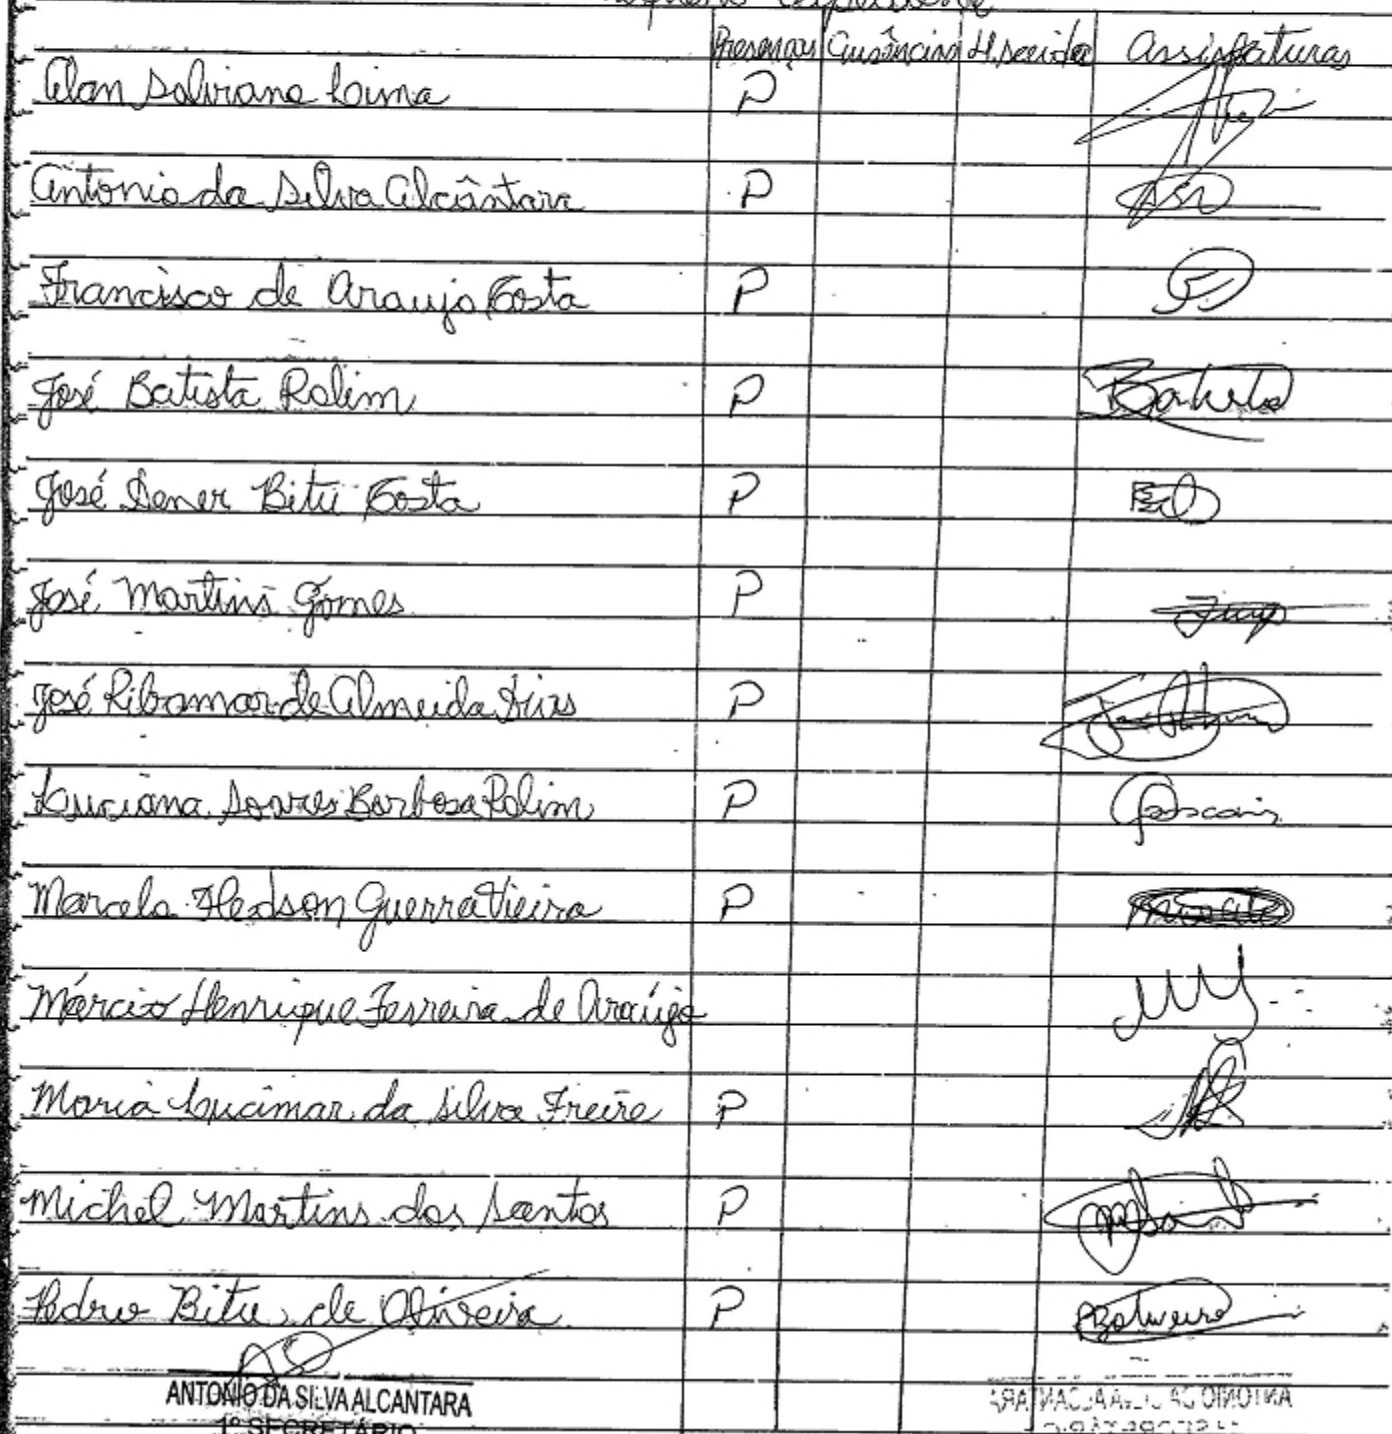 Pequeno Expediente
Presenças Ausências H. saída Assinaturas
Alan Salviano Lima P
Antonio da Silva Alcântara P
Francisco de Araujo Costa P
José Batista Rolim P Batista
José Dener Bitu Costa P
José Martins Gomes P
José Ribamar de Almeida Dias P
Luciana Soares Barbosa Rolim P
Marcelo Hedson Guerra Vieira P
Márcio Henrique Ferreira de Araújo
Maria Lucimar da Silva Freire P
Michel Martins dos Santos P
Pedro Bitu de Oliveira P
ANTONIO DA SILVA ALCANTARA
1º SECRETÁRIO